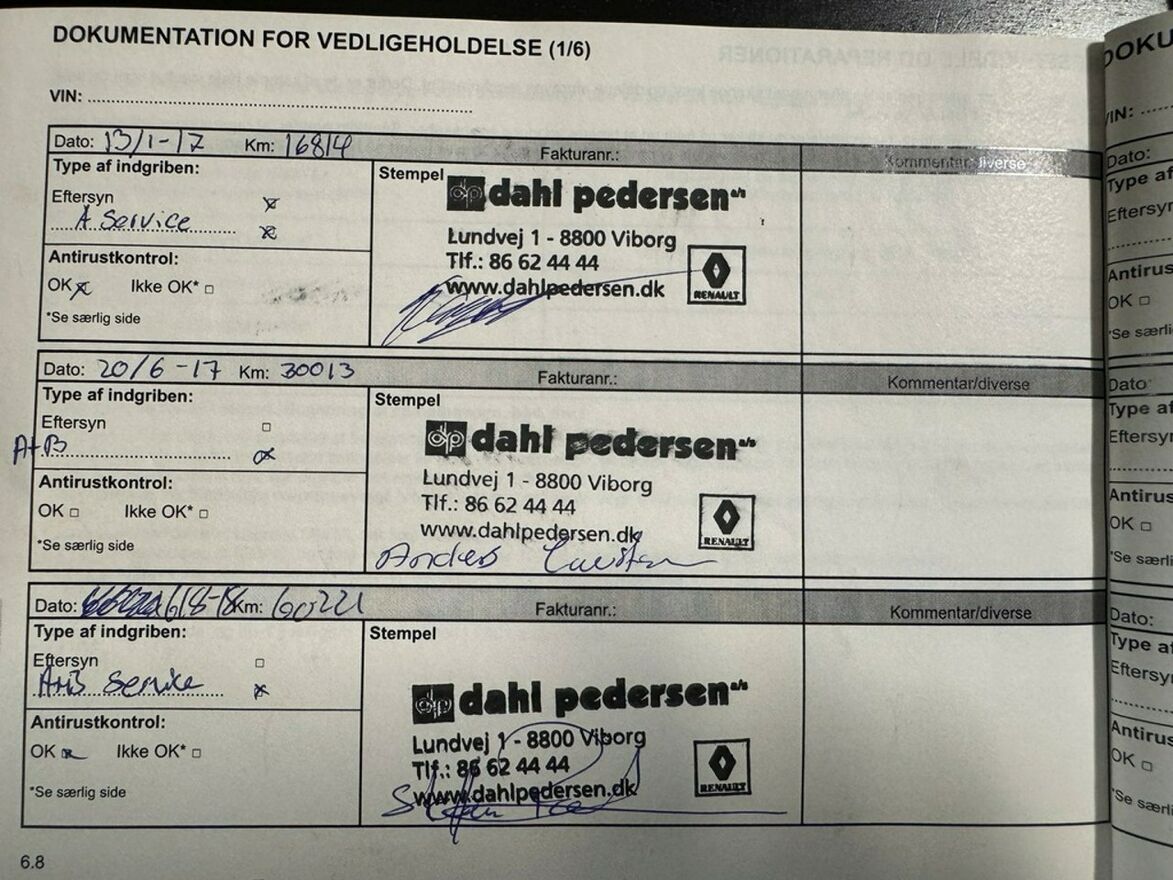 DOKUMENTATION FOR VEDLIGEHOLDELSE (1/6)
VIN:
Dato: 13/1-17 Km: 16814 Fakturanr.: Kommentar/diverse
Type af indgriben:
Stempel
Eftersyn
A Service
Antirustkontrol:
OK Ikke OK*
*Se særlig side
dp dahl pedersen a/s
Lundvej 1 - 8800 Viborg
Tlf.: 86 62 44 44
www.dahlpedersen.dk
RENAULT
Dato: 20/6-17 Km: 30013 Fakturanr.: Kommentar/diverse
Type af indgriben:
Stempel
Eftersyn
A+B
Antirustkontrol:
OK Ikke OK*
*Se særlig side
dp dahl pedersen a/s
Lundvej 1 - 8800 Viborg
Tlf.: 86 62 44 44
www.dahlpedersen.dk
RENAULT
Anders
Dato: Km: 60221 Fakturanr.: Kommentar/diverse
Type af indgriben:
Stempel
Eftersyn
A+B Service
Antirustkontrol:
OK Ikke OK*
*Se særlig side
dp dahl pedersen a/s
Lundvej 1 - 8800 Viborg
Tlf.: 86 62 44 44
www.dahlpedersen.dk
RENAULT
6.8
DOKU
VIN:
Dato:
Type af
Eftersyn
Antirus
OK
*Se særli
Dato
Type af
Eftersyn
Antirus
OK
*Se særli
Dato:
Type af
Eftersyn
Antirus
OK
*Se særli